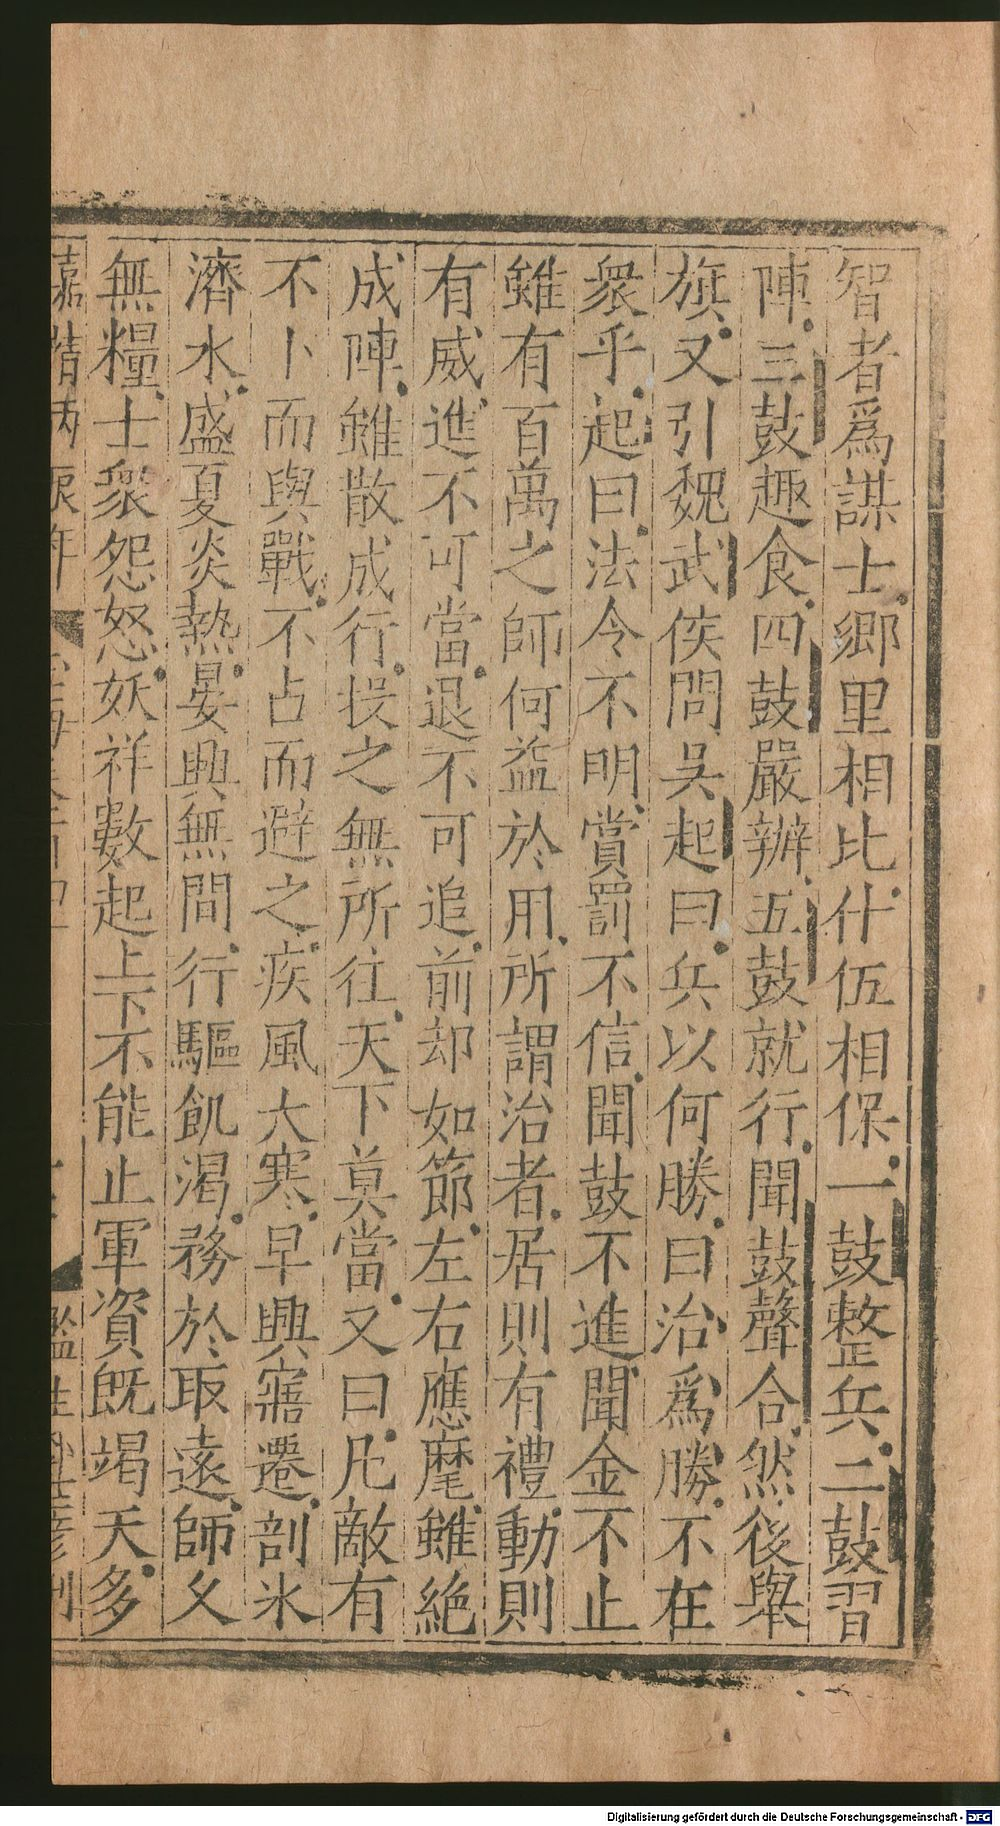 智者爲謀士鄉里相比什伍相保一鼓整兵二鼓習
陣三鼓趣食四鼓嚴辦五鼓就行聞鼓聲合然後舉
旗又引魏武侯問吳起曰兵以何勝曰治爲勝不在
衆乎起曰法令不明賞罰不信聞鼓不進聞金不止
雖有百萬之師何益於用所謂治者居則有禮動則
有威進不可當退不可追前却如節左右應麾雖絶
成陣雖散成行投之無所往天下莫當又曰凡敵有
不卜而與戰不占而避之疾風大寒早興寤遷剖氷
濟水盛夏炎熱晏興無間行驅飢渴務於取遠師久
無糧士衆怨怒妖祥數起上下不能止軍資旣竭天多
嘉靖丙辰年 玉海卷 監生
Digitalisierung gefördert durch die Deutsche Forschungsgemeinschaft - DFG